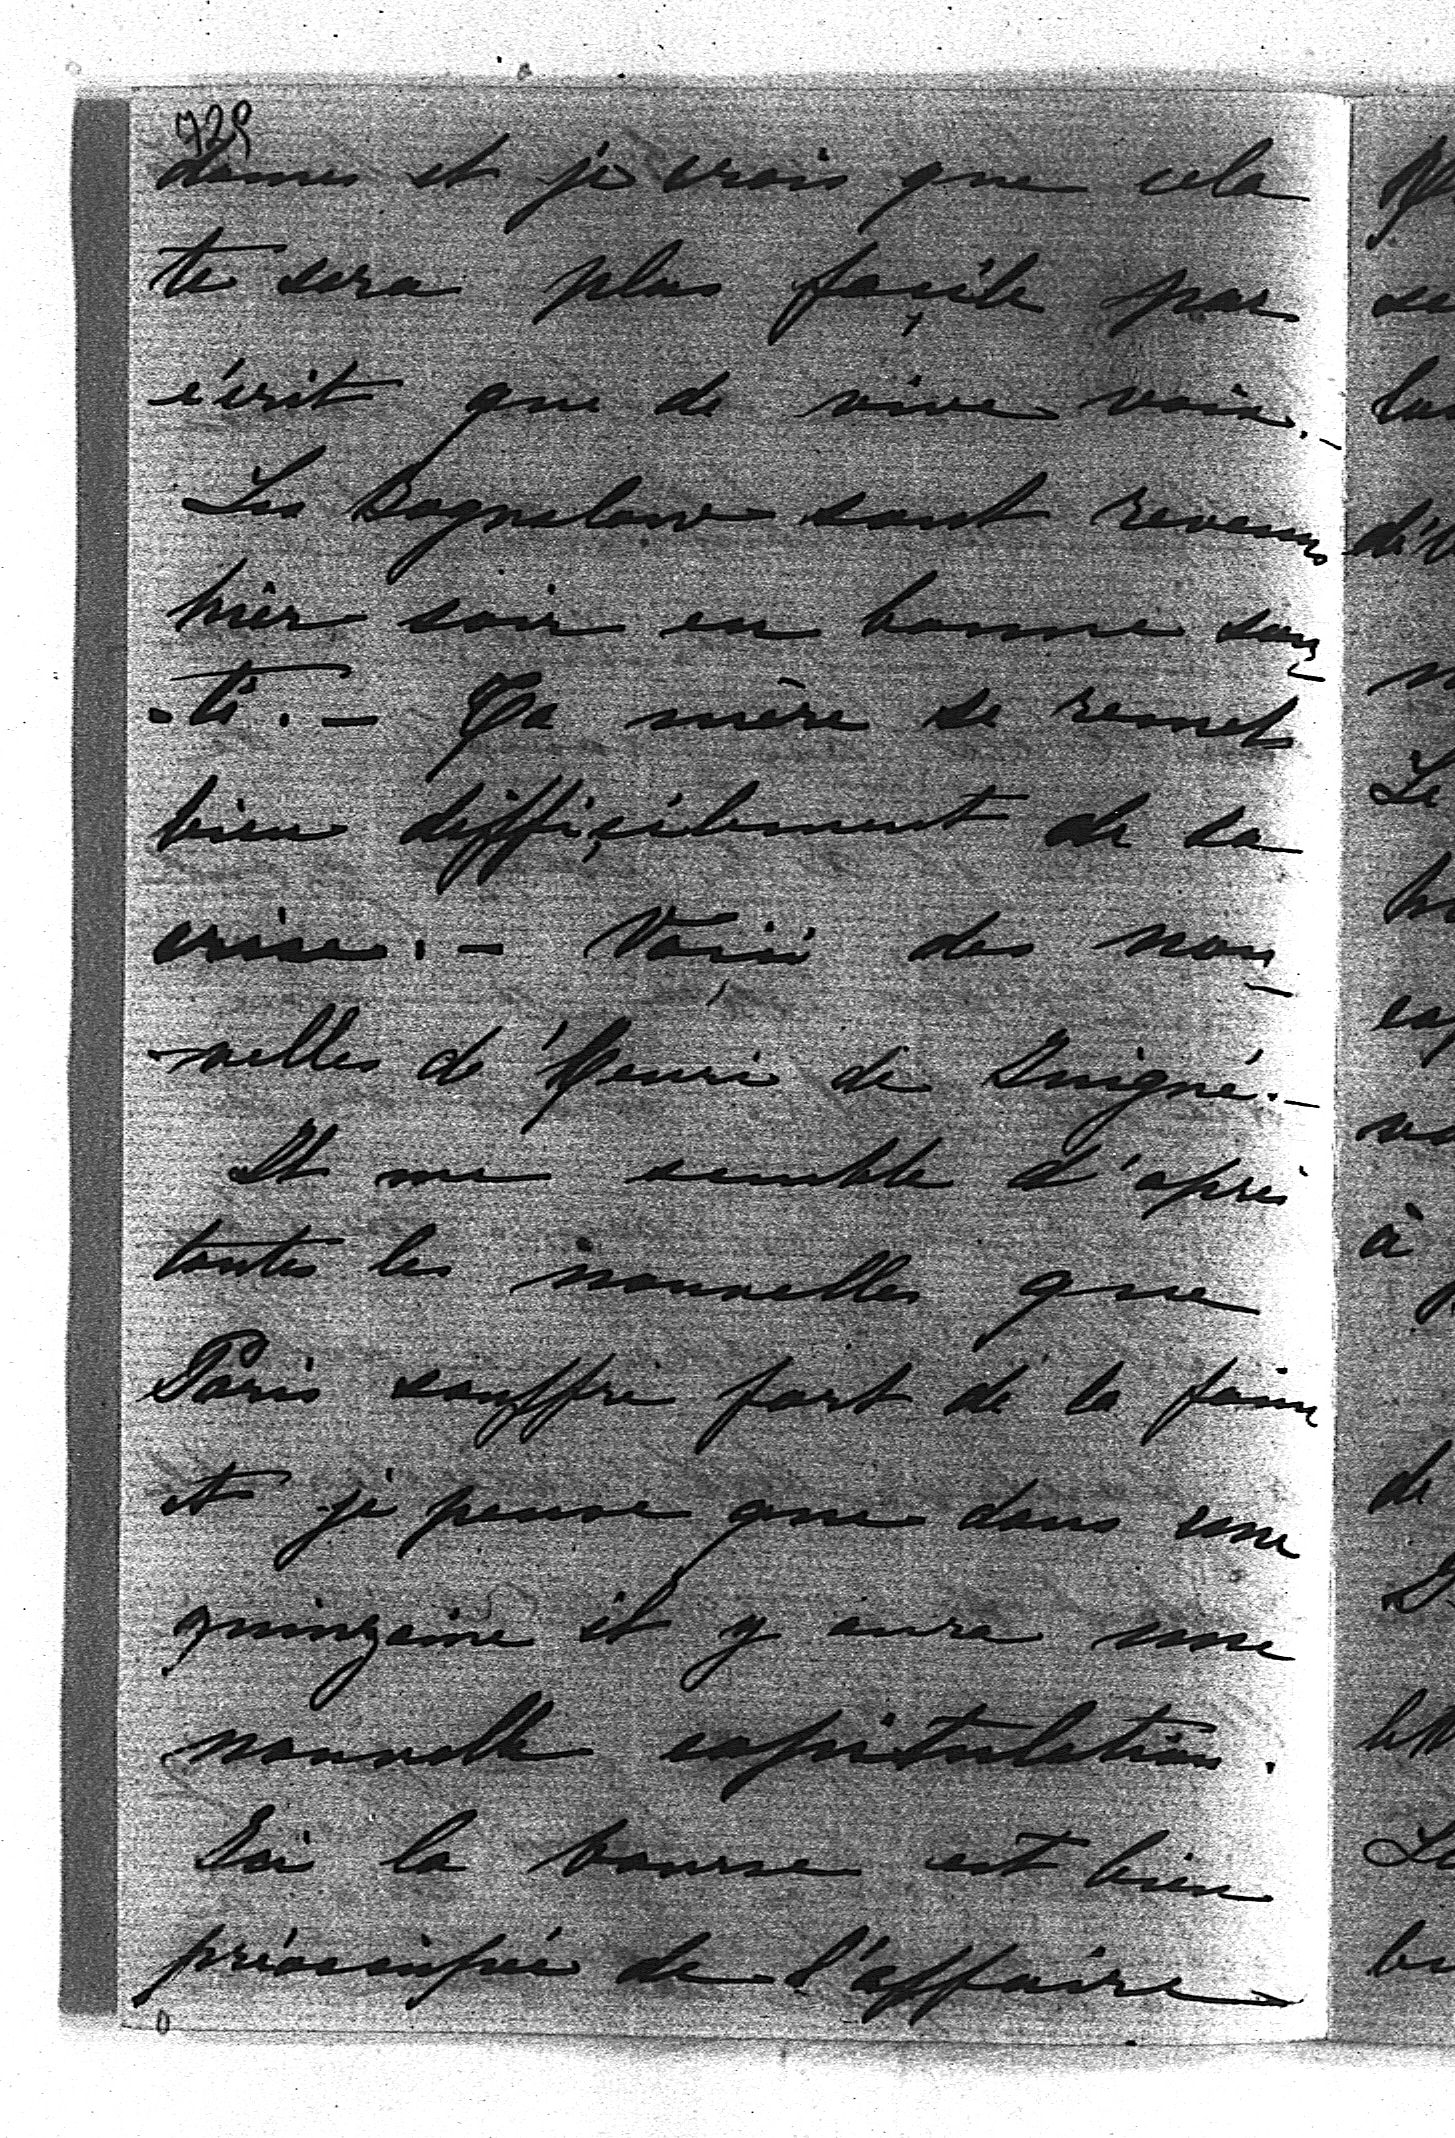 729
dames et je crois que cela
te sera plus facile par
écrit que de vive voix. –
Les sont revenus
hier soir en bonne san
-té. – Ta mère se remet
bien difficilement de sa
crise. – Voici des nou
-velles de Henri de –
Il me semble d'après
toutes les nouvelles que
Paris souffre fort de la faim
et je pense que dans une
quinzaine il y aura une
nouvelle capitulation.
Ici la bourse est bien
préoccupée de l'affaire